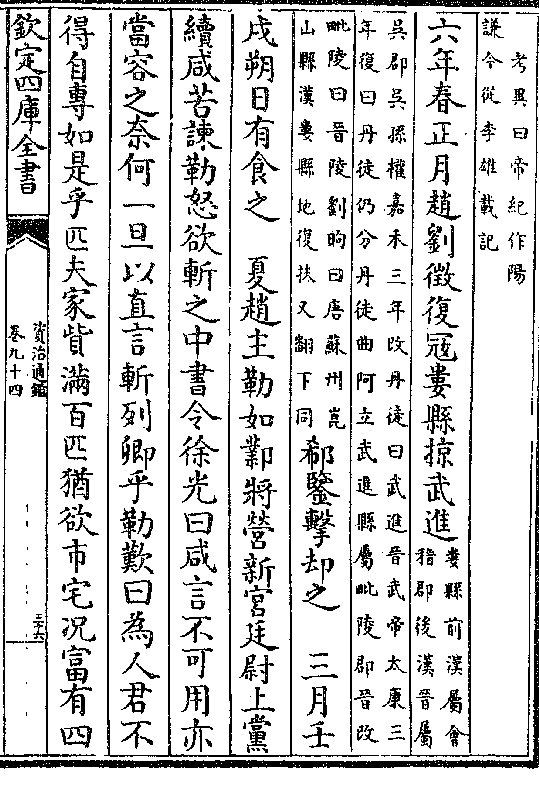 考異曰帝紀作陽
謙今從李雄載記
六年春正月趙劉徵復冦婁縣掠武進婁縣前漢屬會
稽郡後漢晉屬
吳郡吳孫權嘉禾三年改丹徒曰武進晉武帝太康三
年復曰丹徒仍分丹徒曲阿立武進縣屬毗陵郡晉改
毗陵曰晉陵劉昫曰唐蘇州崑
山縣漢婁縣地復扶又翻下同
郗鑒擊却之　三月壬
戌朔日有食之　夏趙主勒如鄴將營新宫廷尉上黨
續咸苦諫勒怒欲斬之中書令徐光曰咸言不可用亦
當容之奈何一旦以直言斬列卿乎勒歎曰為人君不
得自專如是乎匹夫家貲滿百匹猶欲市宅况富有四
欽定四庫全書
資治通鑑
卷九十四